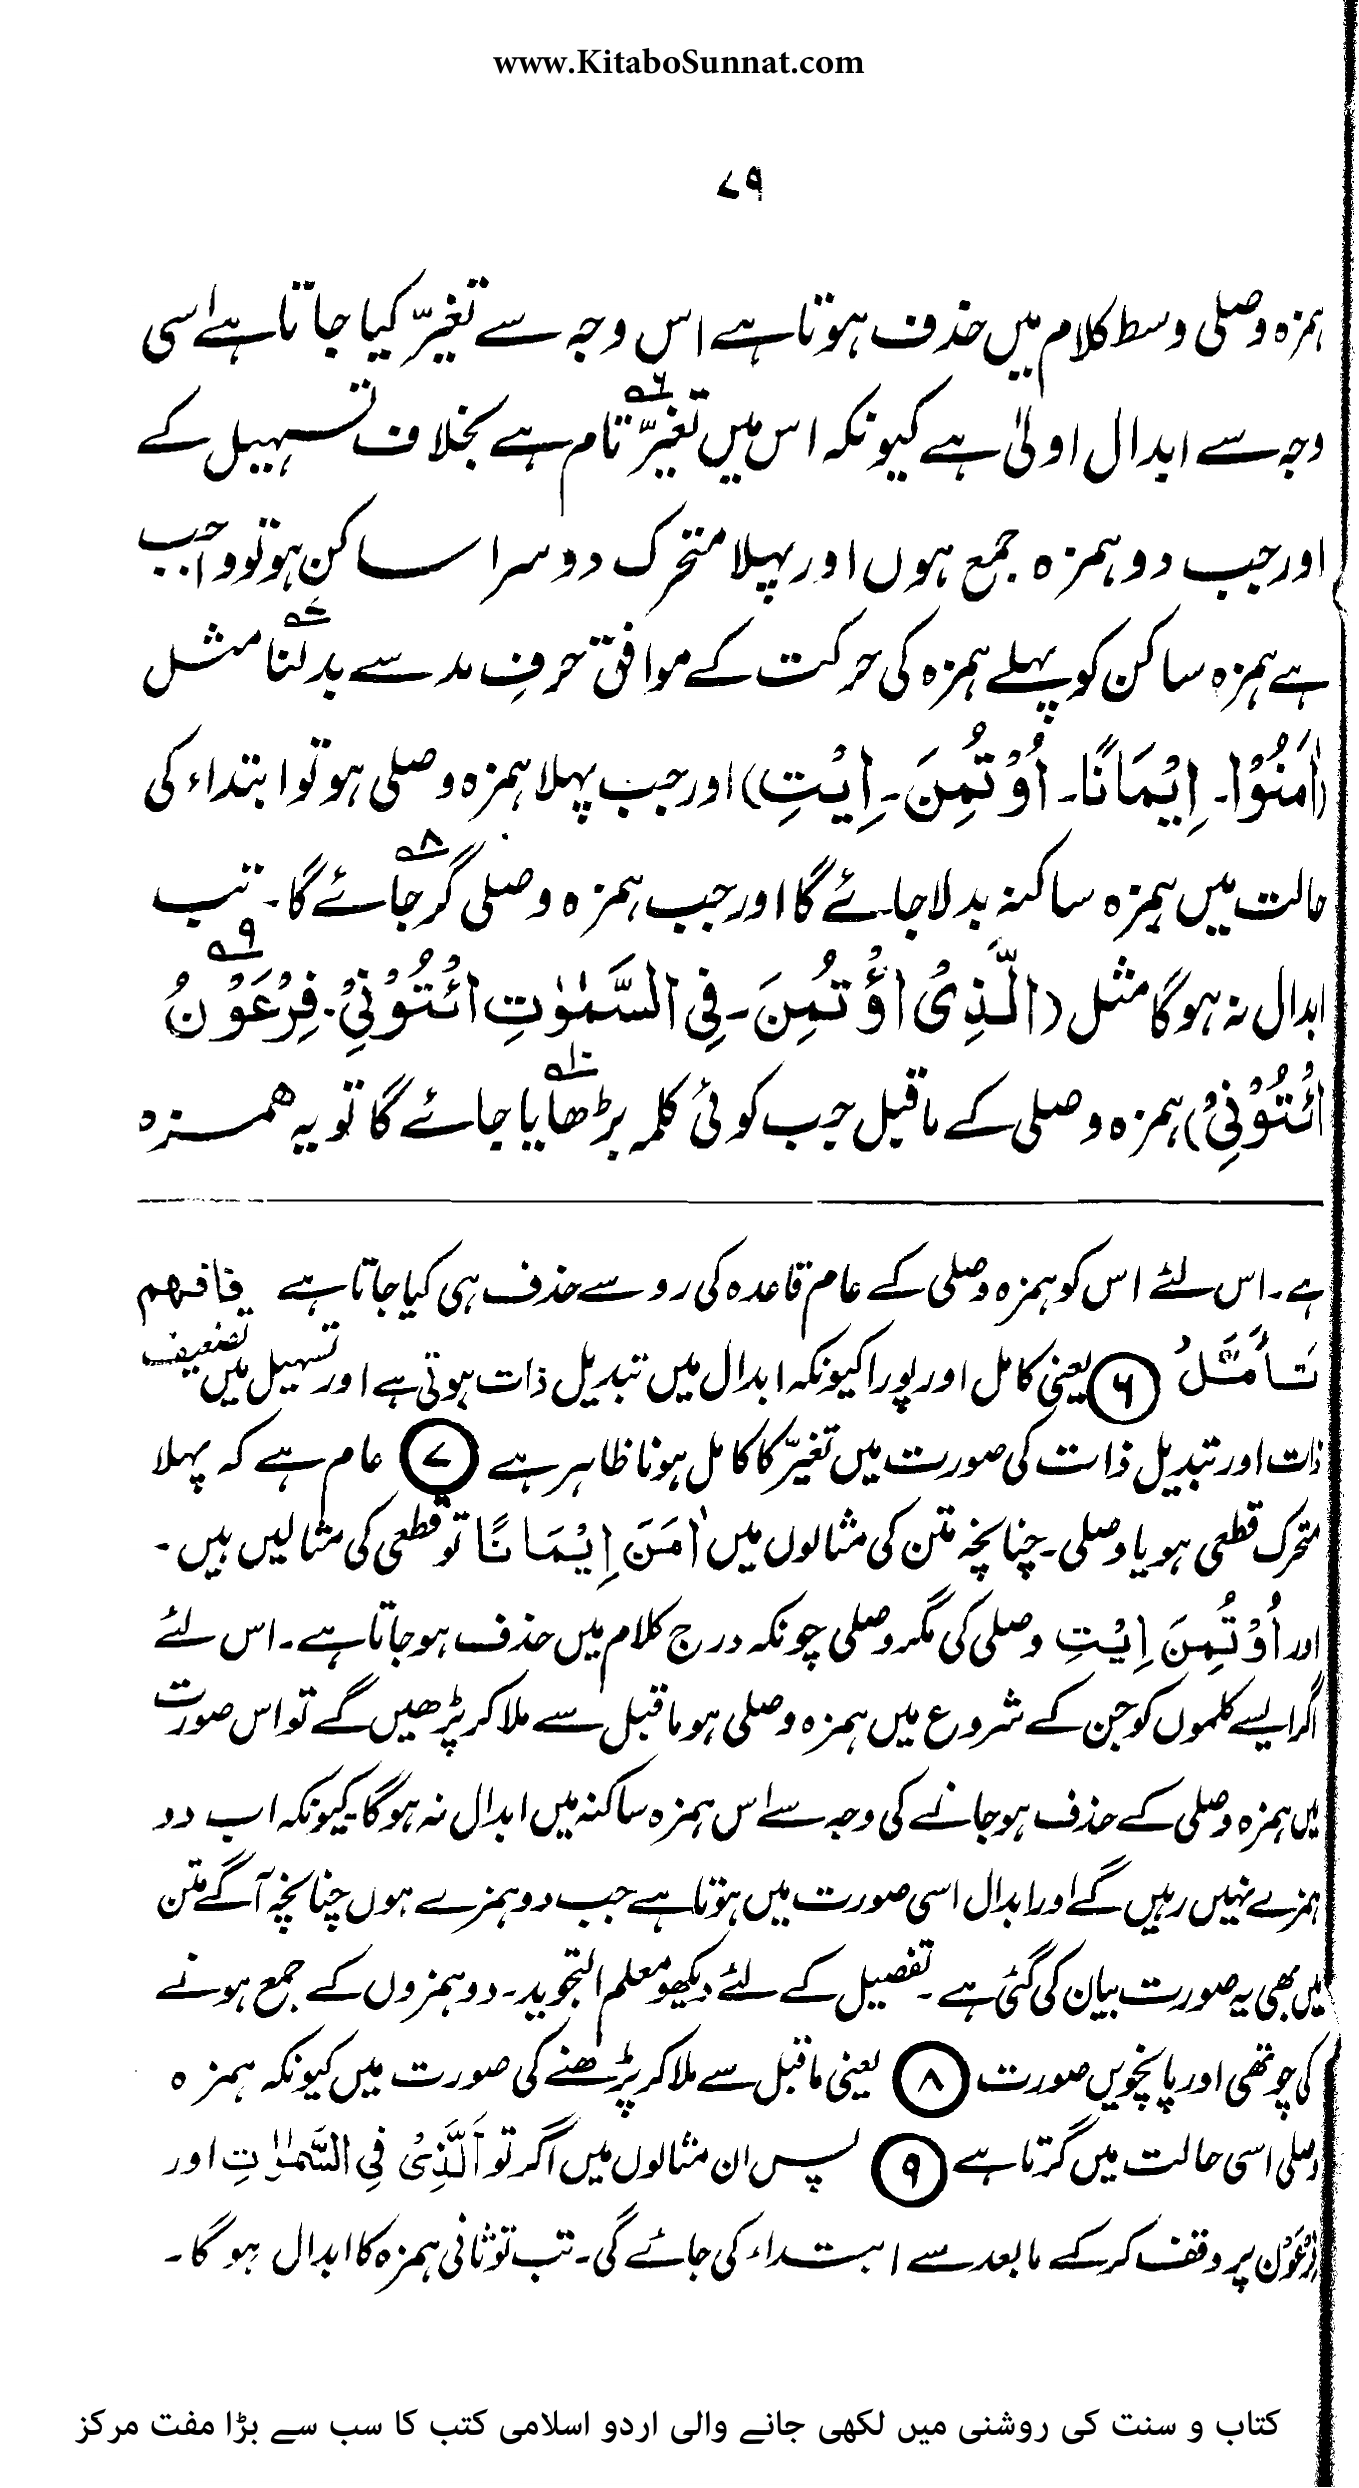 www.KitaboSunnat.com
۷۹
ہمزہ وصلی وسط کلام میں حذف ہوتا ہے اس وجہ سے تغیّر کیا جاتا ہے اسی
وجہ سے ابدال اولیٰ ہے کیونکہ اس میں تغیّر ۶ تام ہے بخلاف تسہیل کے
اور جب دو ہمزہ جمع ہوں اور پہلا متحرک دوسرا ساکن ہو تو واجب
ہے ہمزہ ساکن کو پہلے ہمزہ کی حرکت کے موافق حرفِ مد سے بدلنا ۷ مثل
(اٰمَنُوْا۔ اِیْمَانًا۔ اُوْتُمِنَ۔ اِیْتِ) اور جب پہلا ہمزہ وصلی ہو تو ابتداء کی
حالت میں ہمزہ ساکنہ بدلا جائے گا اور جب ہمزہ وصلی گر جائے ۸ گا۔ تب
ابدال نہ ہوگا مثل (الَّذِیْ اؤْتُمِنَ۔ فِی السَّمٰوٰتِ ائْتُوْنِیْ۔ ۹ فِرْعَوْنُ
ائْتُوْنِیْ) ہمزہ وصلی کے ماقبل جب کوئی کلمہ بڑھایا ۱۰ جائے گا تو یہ ہمزہ
ہے۔ اس لئے اس کو ہمزہ وصلی کے عام قاعدہ کی رو سے حذف ہی کیا جاتا ہے فافہم
تَأَمَّلُ ۶ یعنی کامل اور پورا کیونکہ ابدال میں تبدیل ذات ہوتی ہے اور تسہیل میں تضعیف
ذات اور تبدیل ذات کی صورت میں تغیّر کا کامل ہونا ظاہر ہے ۷ عام ہے کہ پہلا
متحرک قطعی ہو یا وصلی۔ چنانچہ متن کی مثالوں میں اٰمَنَ اِیْمَانًا تو قطعی کی مثالیں ہیں۔
اور اُوْتُمِنَ اِیْتِ وصلی کی مگر وصلی چونکہ درج کلام میں حذف ہو جاتا ہے۔ اس لئے
اگر ایسے کلموں کو جن کے شروع میں ہمزہ وصلی ہو ماقبل سے ملا کر پڑھیں گے تو اس صورت
میں ہمزہ وصلی کے حذف ہو جانے کی وجہ سے اس ہمزہ ساکنہ میں ابدال نہ ہوگا۔ کیونکہ اب دو
ہمزے نہیں رہیں گے اور ابدال اسی صورت میں ہوتا ہے جب دو ہمزے ہوں چنانچہ آگے متن
میں بھی یہ صورت بیان کی گئی ہے۔ تفصیل کے لئے دیکھو معلم التجوید۔ دو ہمزوں کے جمع ہونے
کی چوتھی اور پانچویں صورت ۸ یعنی ماقبل سے ملا کر پڑھنے کی صورت میں کیونکہ ہمزہ
وصلی اسی حالت میں گرتا ہے ۹ پس ان مثالوں میں اگر تو اَلَّذِیْ فِی السَّمٰوٰتِ اور
فِرْعَوْن پر وقف کر کے مابعد سے ابتداء کی جائے گی۔ تب تو ثانی ہمزہ کا ابدال ہو گا۔
کتاب و سنت کی روشنی میں لکھی جانے والی اردو اسلامی کتب کا سب سے بڑا مفت مرکز